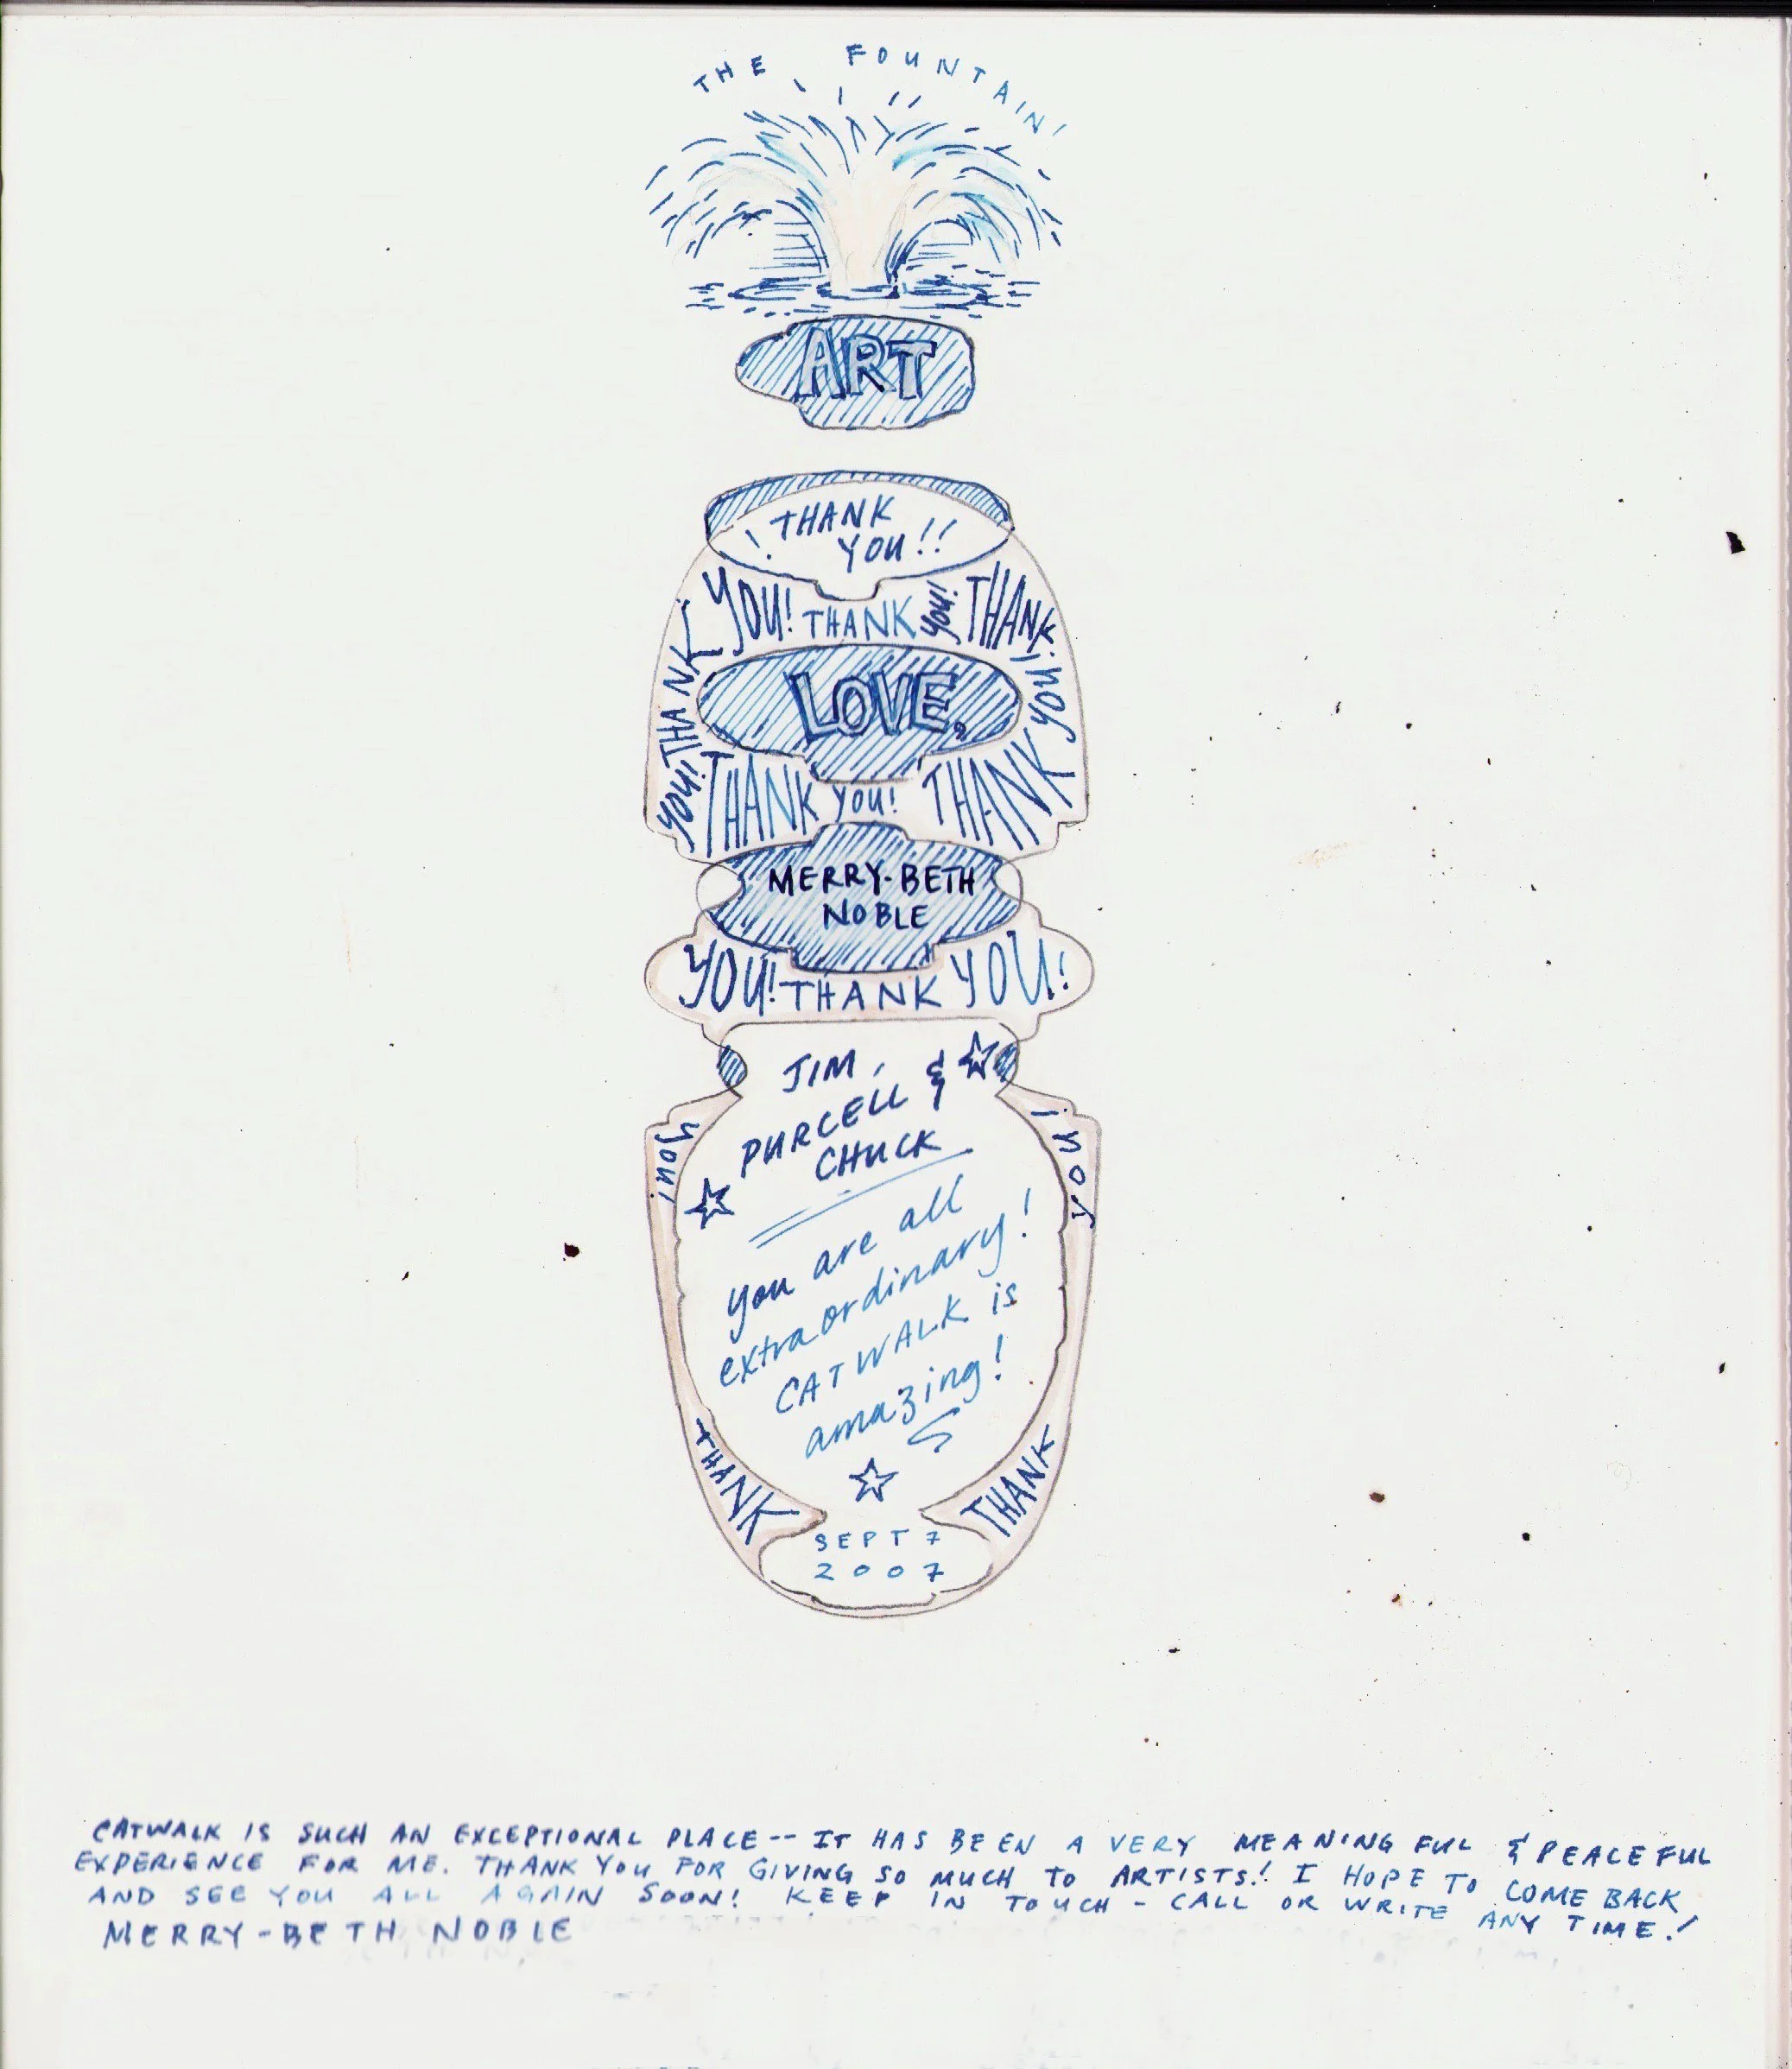 THE FOUNTAIN!
ART
! THANK
YOU!!
YOU! THANK YOU! THANK
YOU!
THANK
YOU!
LOVE,
THANK YOU! THANK
MERRY-BETH
NOBLE
YOU! THANK YOU!
JIM,
PURCELL &
CHUCK
YOU!
YOU!
you are all
extraordinary!
CATWALK is
amazing!
THANK
THANK
SEPT 7
2007
CATWALK IS SUCH AN EXCEPTIONAL PLACE -- IT HAS BEEN A VERY MEANINGFUL & PEACEFUL
EXPERIENCE FOR ME. THANK YOU FOR GIVING SO MUCH TO ARTISTS! I HOPE TO COME BACK
AND SEE YOU ALL AGAIN SOON! KEEP IN TOUCH - CALL OR WRITE ANY TIME!
MERRY-BETH NOBLE